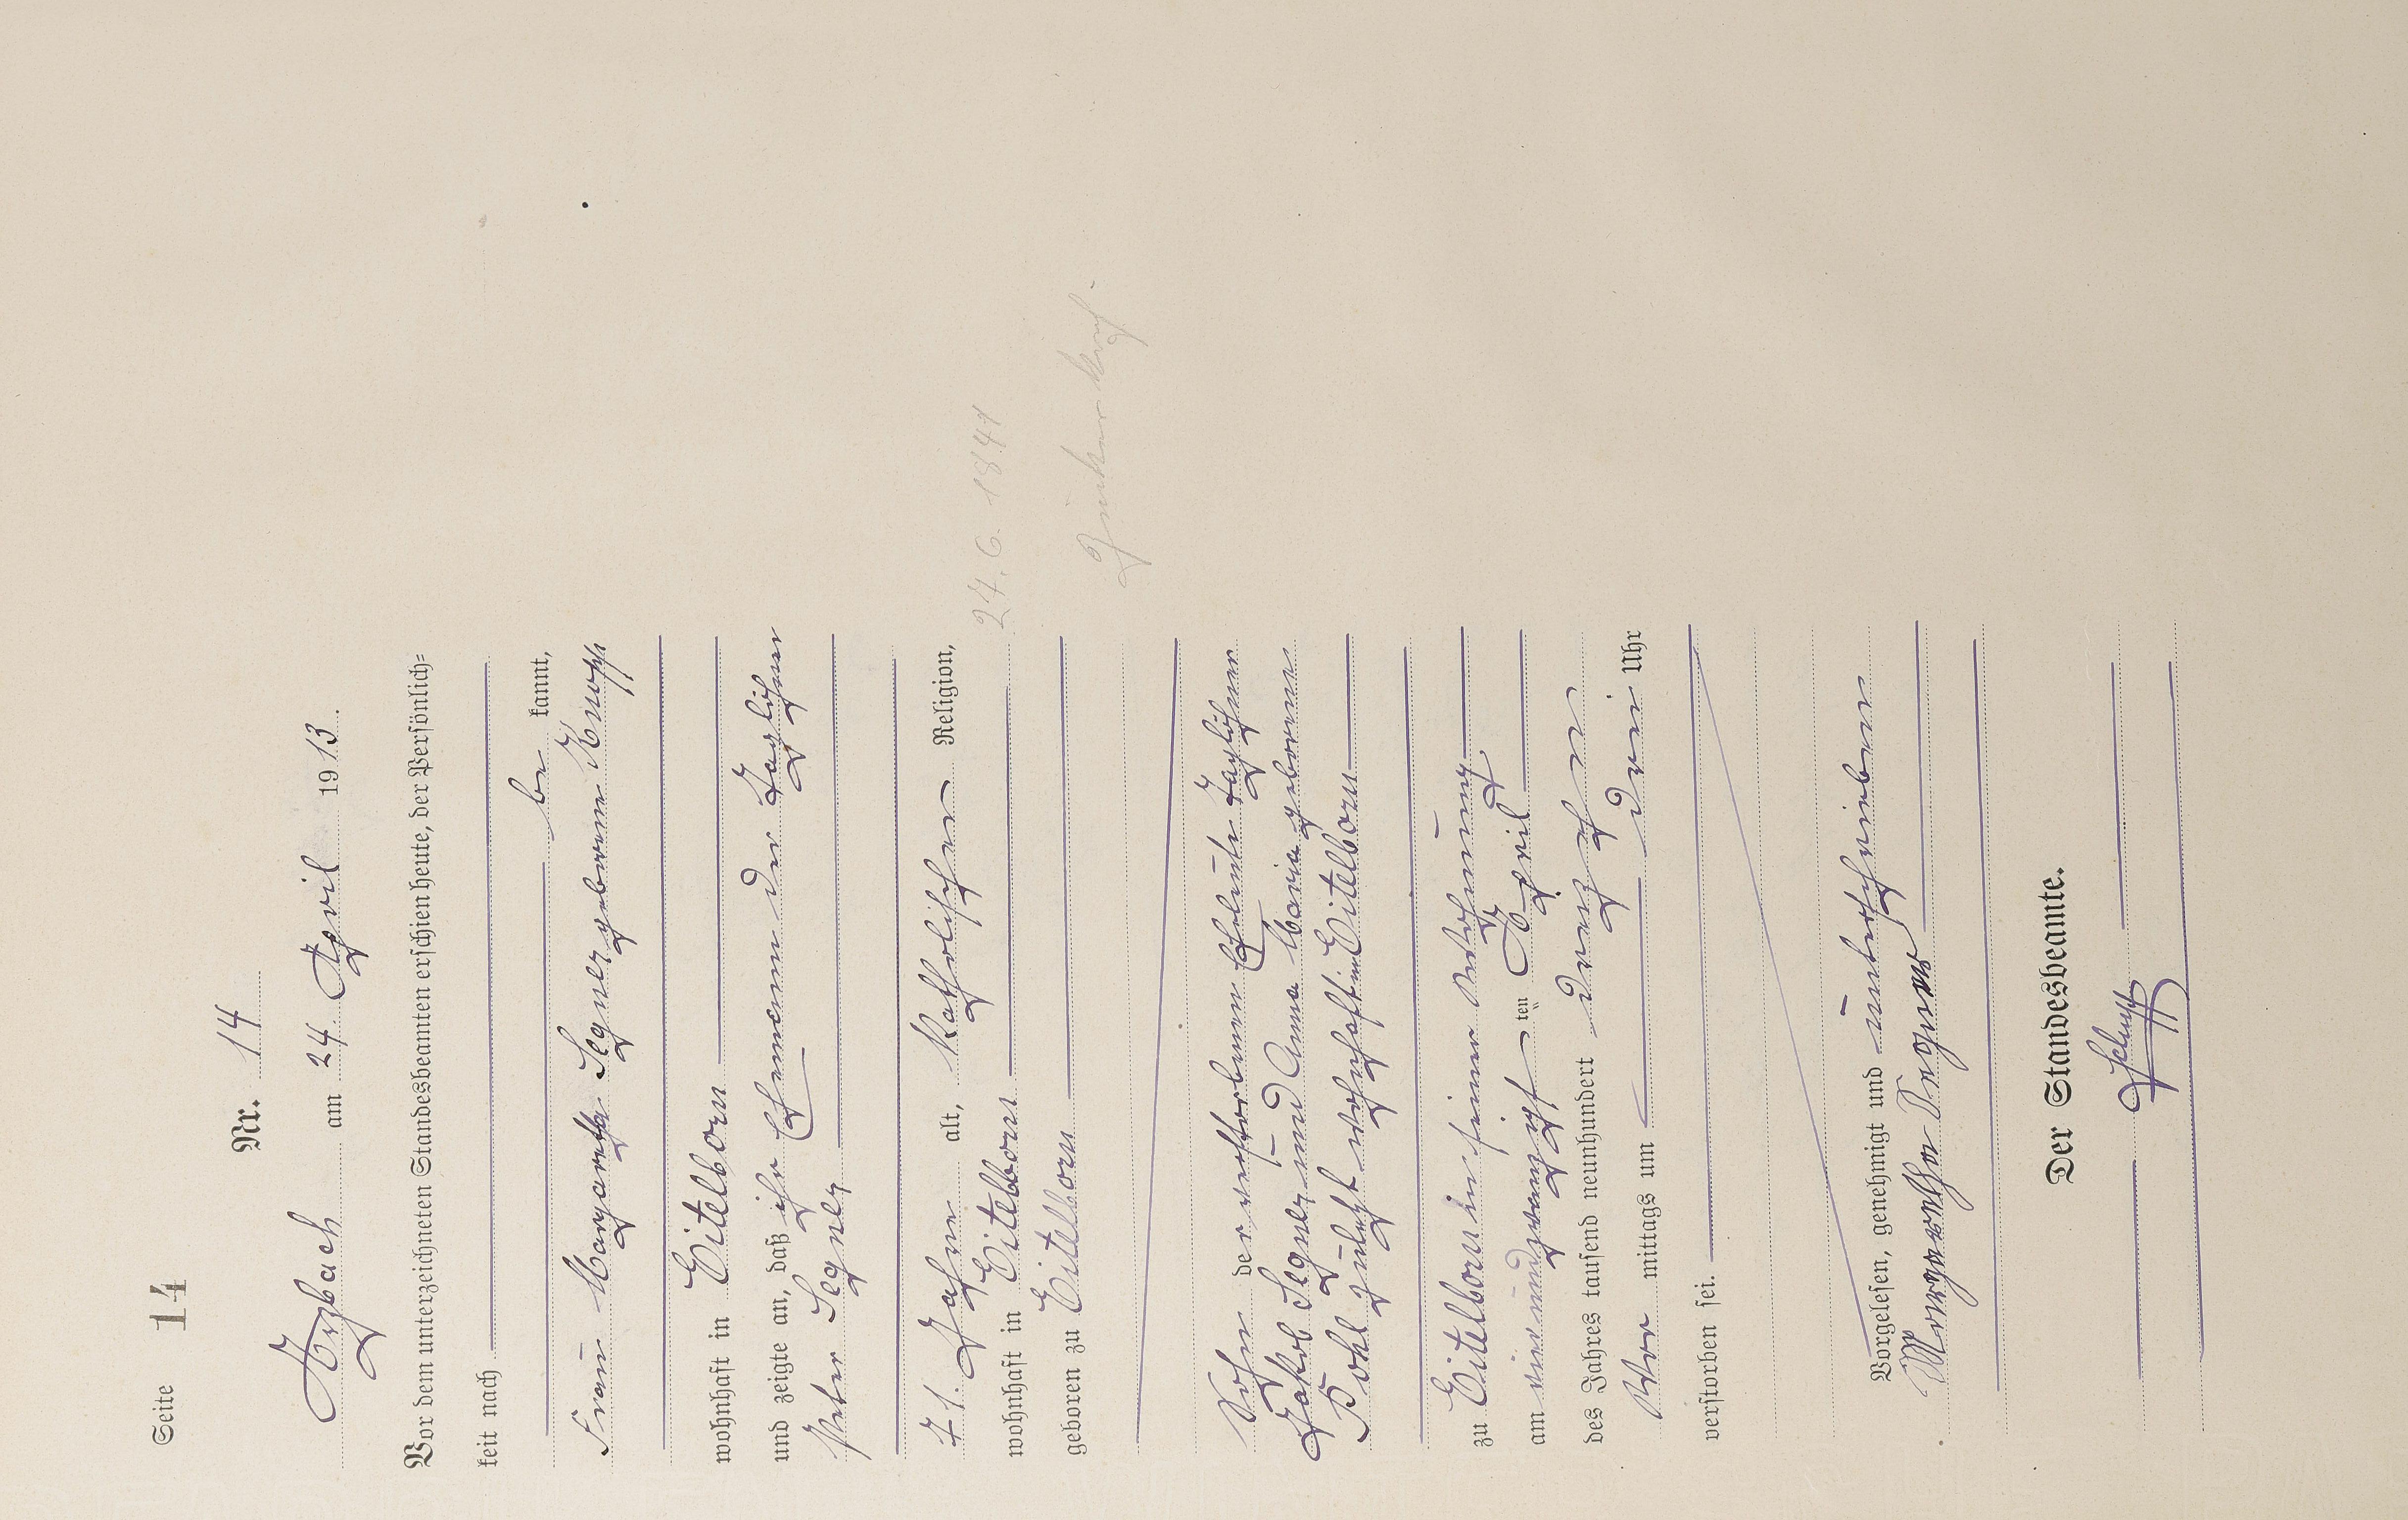 Seite 14
Nr. 14
Arzbach am 24. April 1913.
Vor dem unterzeichneten Standesbeamten erschien heute, der Persönlich-
keit nach
be kannt,
Frau Margaretha Segner geborene Knopp
wohnhaft in Eitelborn
und zeigte an, daß ihr Ehemann der Taglöhner
Peter Segner
71 Jahre alt, Katholischer Religion,
24.6.1841
wohnhaft in Eitelborn
geboren zu Eitelborn
Sohn der verstorbenen Eheleute Taglöhner
Jakob Segner und Anna Maria geborenen
Pohl zuletzt wohnhaft in Eitelborn
zu Eitelborn in seiner Wohnung
am vierundzwanzigsten April
des Jahres tausend neunhundert dreizehn
Vor mittags um drei Uhr
verstorben sei.
Vorgelesen, genehmigt und unterschrieben
Margaretha Segner
Der Standesbeamte.